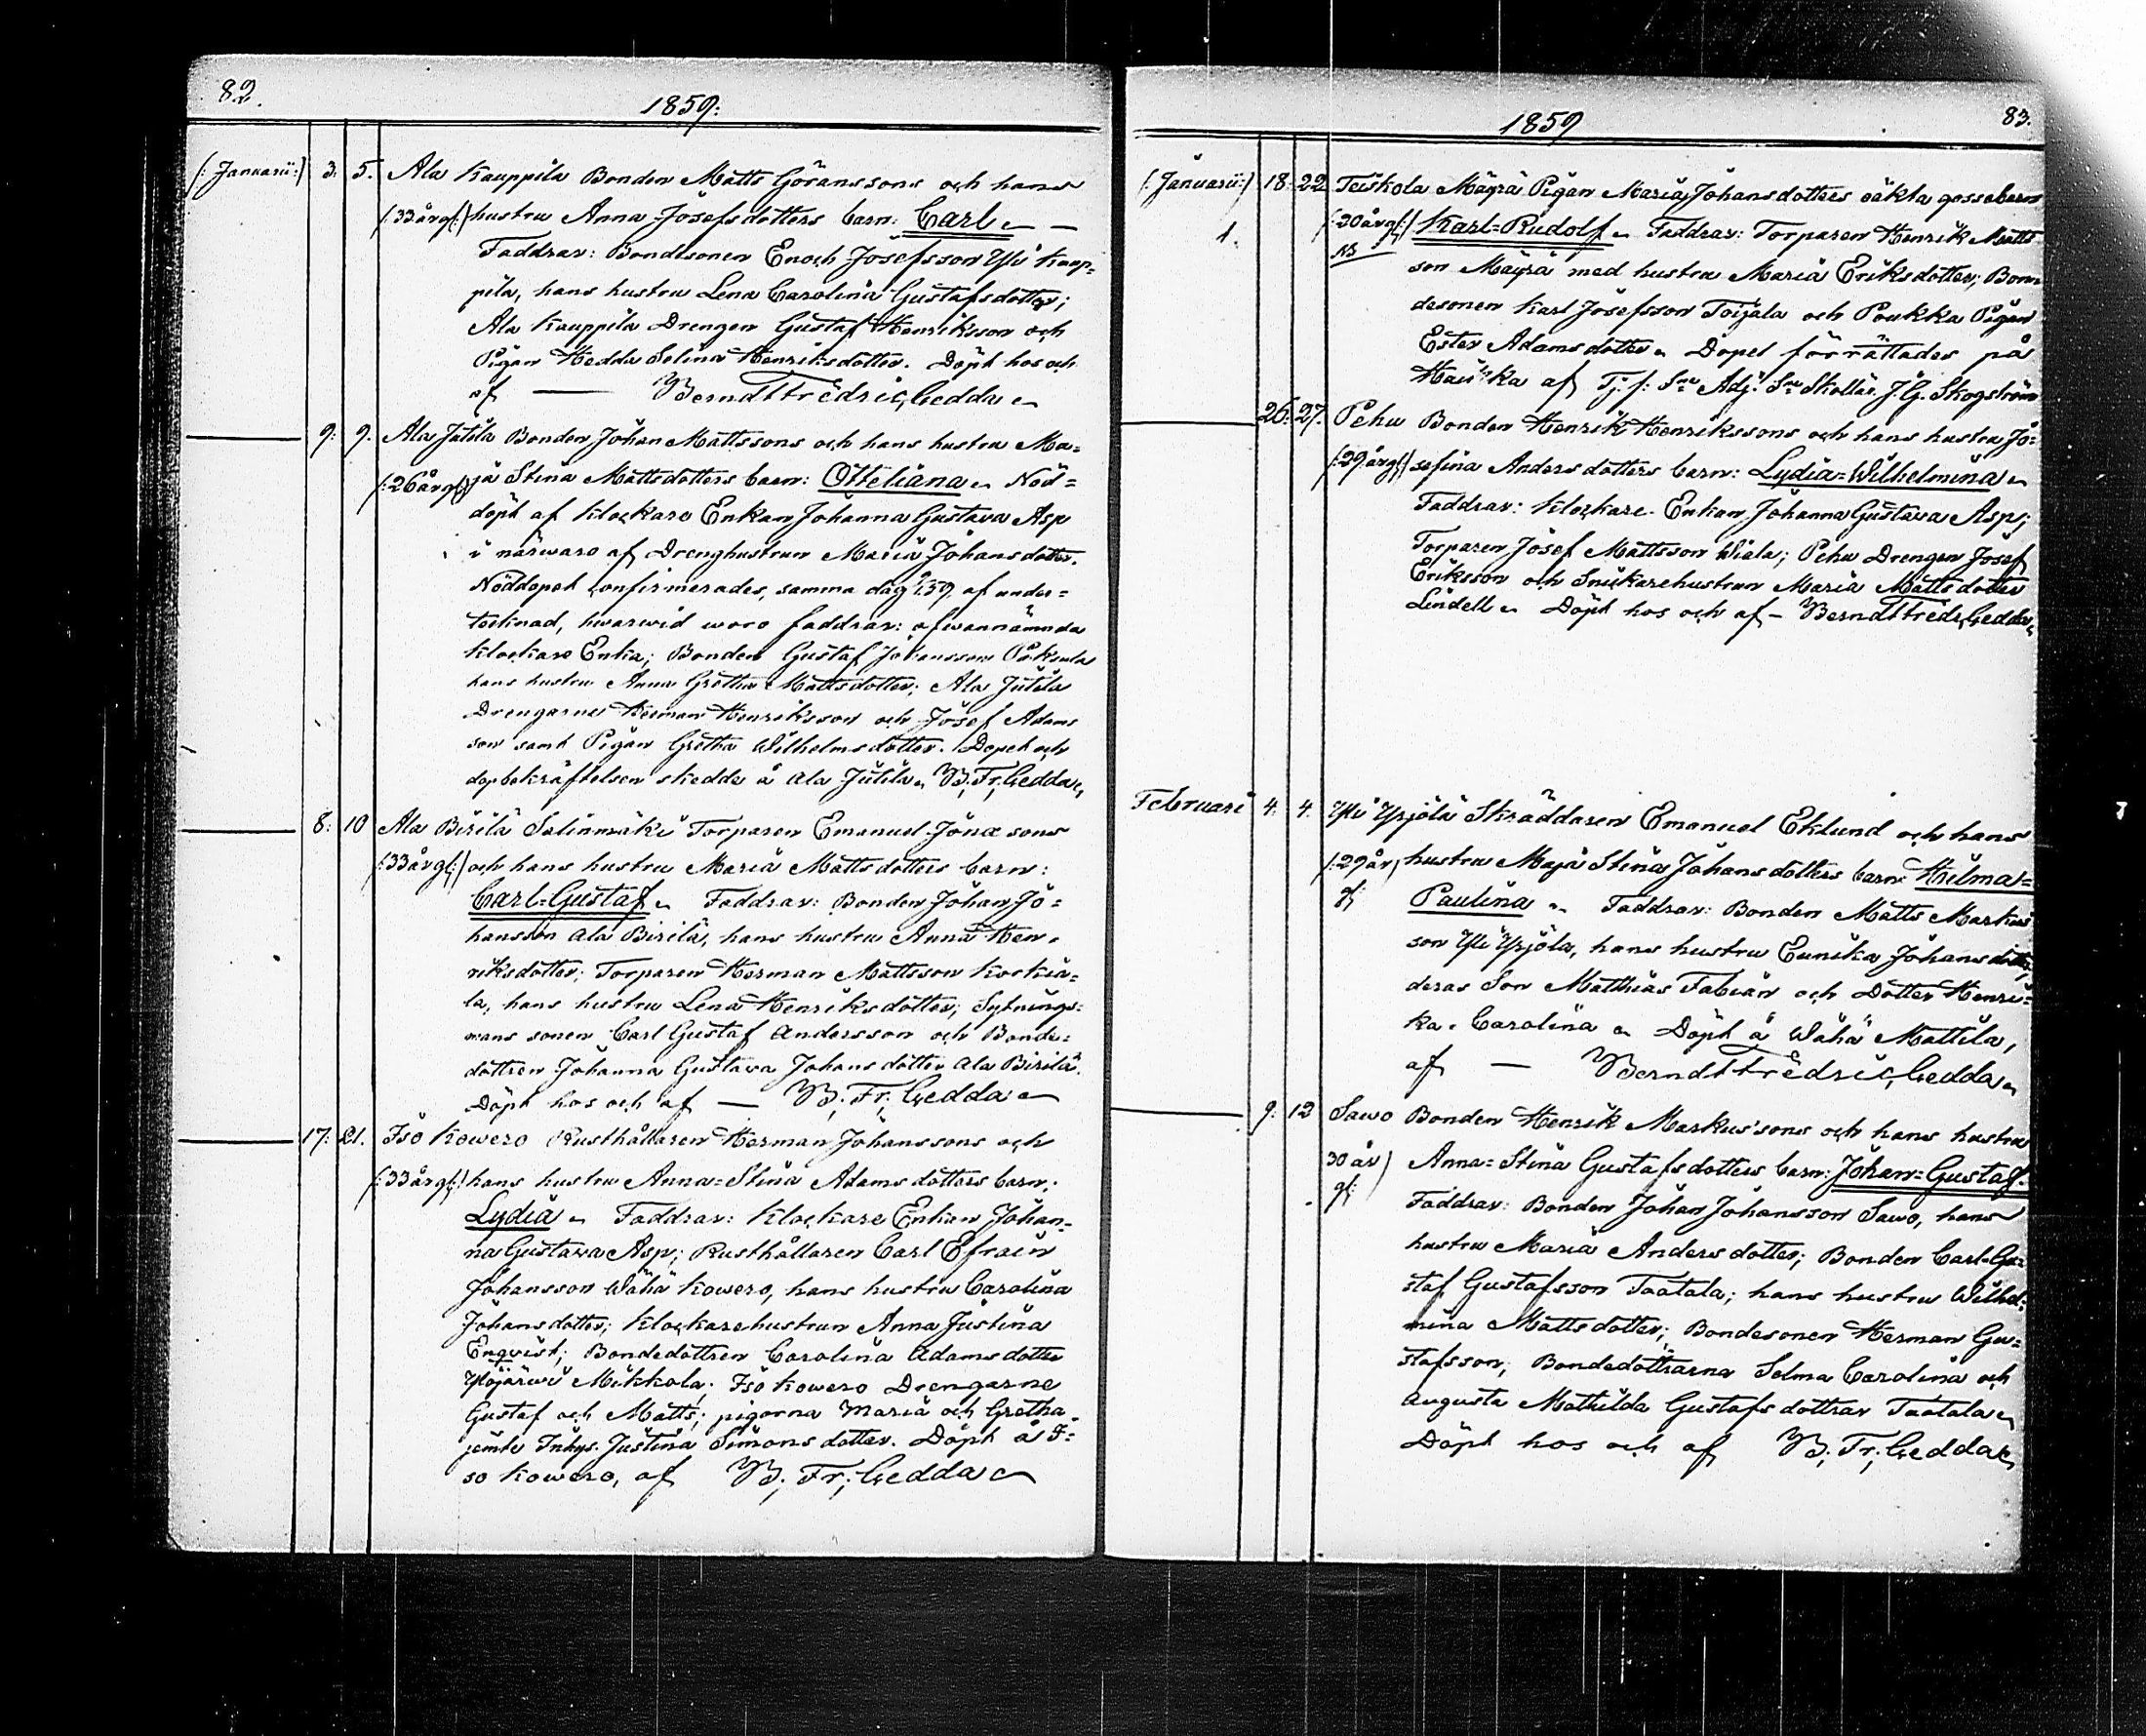 82.
1859:
(: Januarii:) 3. 5. Ala Kauppila Bonden Matts Göranssons och hans
(:33 år gl:) hustru Anna Josefsdotters barn: Carl
Faddrar: Bondesonen Enoch Josefsson Yli Kaup=
pila, hans hustru Lena Carolina Gustafsdotter;
Ala Kauppila Drengen Gustaf Henriksson och
Pigan Hedda Selina Henriksdotter. Döpt hos och
af — Berndt Fredric Gedda
9: 9. Ala Jutila Bonden Johan Mattssons och hans hustru Ma=
(:26 år gl:) ja Stina Mattsdotters barn: Otteliana Nöd=
döpt af Klockare Enkan Johanna Gustava Asp
i närwaro af Drenghustrun Maria Johansdotter.
Nöddopet confirmerades, samma dag 9/1 59, af under=
tecknad, hwarwid woro faddrar: ofwannämnda
Klockare Enka; Bonden Gustaf Johansson
hans hustru Anna Gretha Mattsdotter; Ala Jutila
Drengarne Herman Henriksson och Josef Adams
son samt Pigan Gretha Wilhelmsdotter. Dopet och
dopbekräftelsen skedde å Ala Jutila B; Fr; Gedda
8: 10 Ala Birilä Salinmäki Torparen Emanuel Jonæ sons
(:33 år gl:) och hans hustru Maria Mattsdotters barn:
Carl=Gustaf Faddrar: Bonden Johan Jo=
hansson Ala Birilä, hans hustru Anna Hen=
riksdotter; Torparen Herman Mattsson Korkia=
la, hans hustru Lena Henriksdotter; Sytnings=
mans sonen Carl Gustaf Andersson och Bonde=
dottren Johanna Gustava Johansdotter Ala Birilä.
Döpt hos och af — B; Fr; Gedda
17: 21. Iso Kowero Rusthållaren Herman Johanssons och
(:33 år gl:) hans hustru Anna=Stina Adamsdotters barn:
Lydia Faddrar: Klockare Enkan Johan=
na Gustava Asp; Rusthållaren Carl Efraim
Johansson Wähä Kowero, hans hustru Carolina
Johansdotter; Klockarehustrun Anna Justina
Enqvist; Bondedottren Carolina Adamsdotter
Ylöjärwi Mikkola; Iso Kowero Drengarne
Gustaf och Matts; pigorna Maria och Gretha
jemte Inhys. Justina Simonsdotter. Döpt å I=
so Kowero, af B; Fr; Gedda
1859
83.
(: Januarii:) 18. 22 Teiskola Mäyrä Pigan Maria Johansdotters oäkta gossebarn
1. (:20 år gl:) Karl=Rudolf Faddrar: Torparen Henrik Matts
NB son Mäyrä med hustru Maria Eriksdotter; Bon=
desonen Karl Josefsson Toijala och Poukka Pigan
Ester Adamsdotter Dopet förrättades på
af Tj. f: Sm Adj: Sm J. G. Skogström
26. 27. Pehu Bonden Henrik Henrikssons och hans hustru Jo=
(:29 år gl:) sefina Andersdotters barn: Lydia=Wilhelmina
Faddrar: Klockare Enkan Johanna Gustava Asp;
Torparen Josef Mattsson Wiala; Pehu Drengen Josef
Eriksson och Snickarehustrun Maria Mattsdotter
Lindell Döpt hos och af — Berndt Fredr Gedda
Februari 4. 4. Yli Yrjölä Skräddaren Emanuel Eklund och hans
(:29 år hustru Maja Stina Johansdotters barn: Hilma=
gl: Paulina Faddrar: Bonden Matts Markus
son Yli Yrjöla, hans hustru Eunika Johansdotter,
deras Son Matthias Fabian och Dotter Henri=
ka Carolina Döpt å Wähä Mattila,
af — Berndt Fredric Gedda
9: 12 Sawo Bonden Henrik Markus'sons och hans hustru
30 år) Anna=Stina Gustafsdotters barn: Johan=Gustaf.
gl: Faddrar: Bonden Johan Johansson Sawo, hans
hustru Maria Andersdotter; Bonden Carl Gu=
staf Gustafsson Taatala; hans hustru Wilhel=
mina Mattsdotter; Bondesonen Herman Gu=
stafsson; Bondedöttrarna Selma Carolina och
Augusta Mathilda Gustafsdöttrar Taatala
Döpt hos och af B; Fr; Gedda